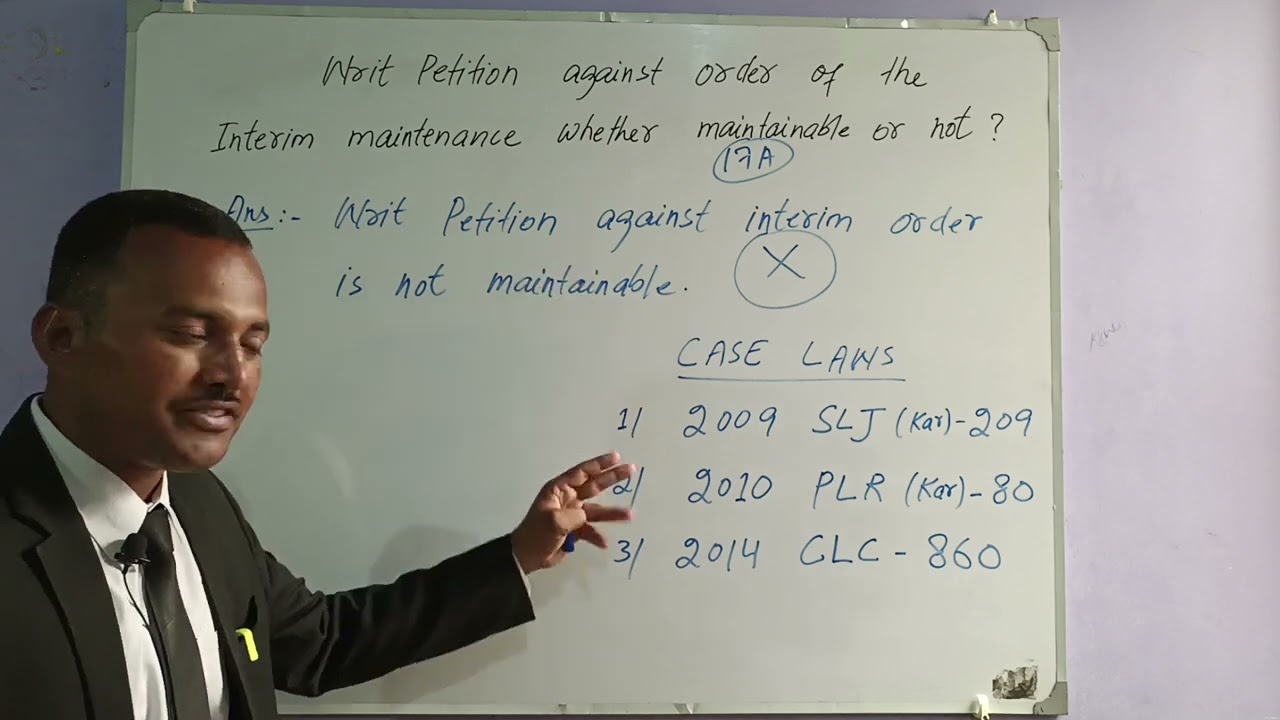 Writ Petition against order of the
Interim maintenance whether maintainable or not ?
17A
Ans:- Writ Petition against interim order
is not maintainable. X
CASE LAWS
1/ 2009 SLJ (Kar)-209
2/ 2010 PLR (Kar)-80
3/ 2014 CLC - 860